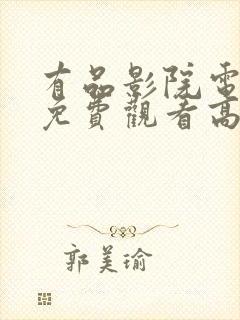 有品影院電
免費觀看高
郭美瑜